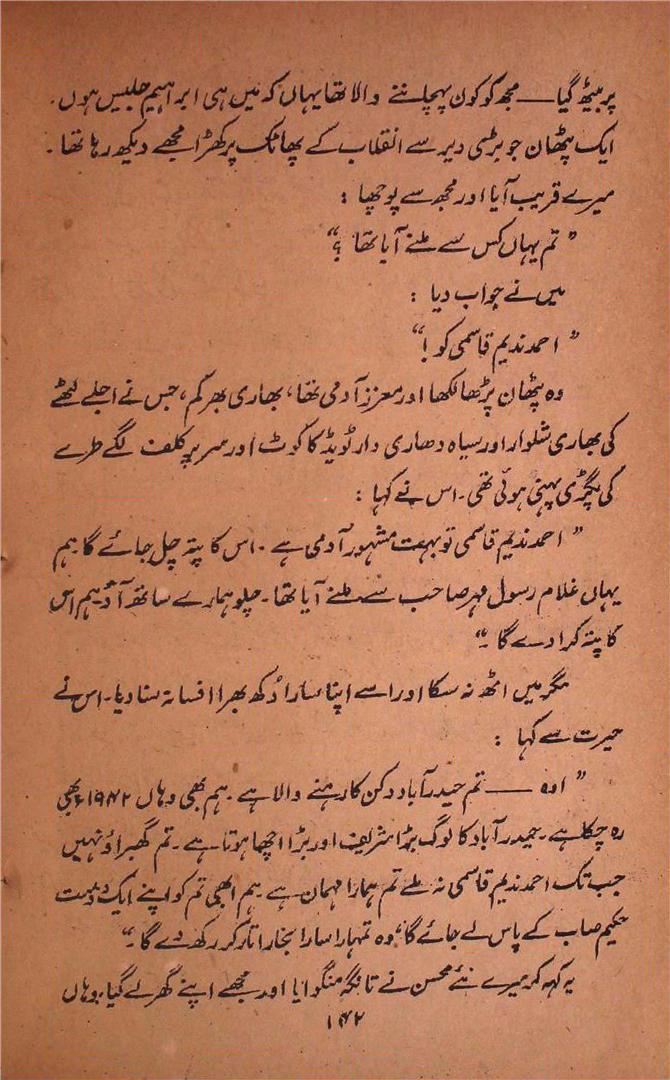 پر بیٹھ گیا — مجھ کو کون پہچاننے والا تھا یہاں کہ میں ہی ابراہیم جلیس ہوں۔
ایک پٹھان جو بڑی دیر سے انقلاب کے پھاٹک پر کھڑا مجھے دیکھ رہا تھا۔
میرے قریب آیا اور مجھ سے پوچھا :
” تم یہاں کس سے ملنے آیا تھا ؟“
میں نے جواب دیا :
” احمد ندیم قاسمی کو !“
وہ پٹھان پڑھا لکھا اور معزز آدمی تھا، بھاری بھرکم، جس نے اجلے لٹھے
کی بھاری شلوار اور سیاہ دھاری دار ٹویڈ کا کوٹ اور سر پر کلف لگے طرے
کی پگڑی پہنی ہوئی تھی۔ اس نے کہا :
” احمد ندیم قاسمی تو بہت مشہور آدمی ہے۔ اس کا پتہ چل جائے گا۔ ہم
یہاں غلام رسول مہر صاحب سے ملنے آیا تھا۔ چلو ہمارے ساتھ آؤ ہم اس
کا پتہ کرا دے گا۔“
مگر میں اٹھ نہ سکا اور اسے اپنا سارا دُکھ بھرا افسانہ سنا دیا۔ اس نے
حیرت سے کہا :
” اوہ — تم حیدرآباد دکن کا رہنے والا ہے۔ ہم بھی وہاں ۱۹۴۲ء بھی
رہ چکا ہے۔ حیدرآباد کا لوگ بڑا شریف اور بڑا اچھا ہوتا ہے۔ تم گھبراؤ نہیں
جب تک احمد ندیم قاسمی نہ ملے تم ہمارا مہمان ہے۔ ہم ابھی تم کو اپنے ایک دوست
حکیم صاب کے پاس لے جائے گا، وہ تمہارا سارا بخار اتار کر رکھ دے گا۔“
یہ کہہ کر میرے نئے محسن نے تانگہ منگوایا اور مجھے اپنے گھر لے گیا۔ وہاں
۱۴۲